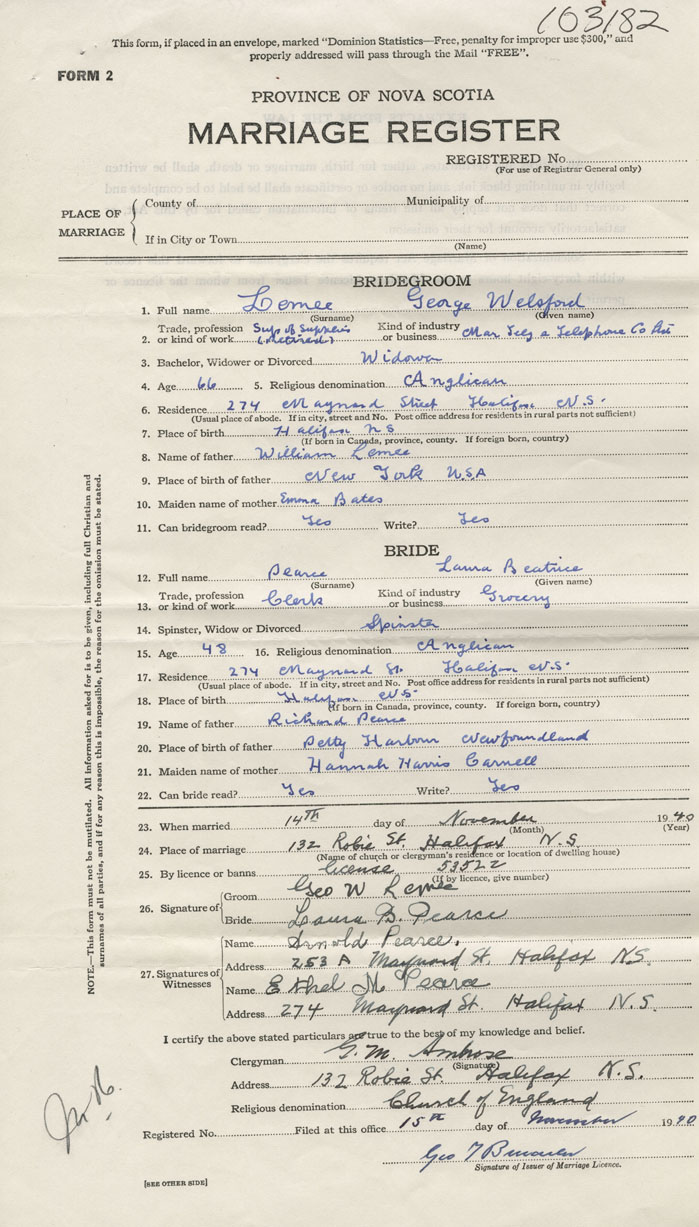 103182
This form, if placed in an envelope, marked "Dominion Statistics—Free, penalty for improper use $300," and
properly addressed will pass through the Mail "FREE".
FORM 2
PROVINCE OF NOVA SCOTIA
MARRIAGE REGISTER
REGISTERED No.
(For use of Registrar General only)
PLACE OF MARRIAGE
County of Municipality of
If in City or Town
(Name)
BRIDEGROOM
1. Full name George Welsford
(Surname) (Given name)
Trade, profession Sup of Supplies Kind of industry
2. or kind of work (retired) or business Mar Telg & Telephone Co
3. Bachelor, Widower or Divorced Widower
4. Age 66 5. Religious denomination Anglican
6. Residence 274 Maynard Street Halifax N.S.
(Usual place of abode. If in city, street and No. Post office address for residents in rural parts not sufficient)
7. Place of birth Halifax NS
(If born in Canada, province, county. If foreign born, country)
8. Name of father William
9. Place of birth of father New York USA
10. Maiden name of mother Emma Bates
11. Can bridegroom read? Yes Write? Yes
BRIDE
12. Full name Pearce Laura Beatrice
(Surname) (Given name)
Trade, profession Clerk Kind of industry Grocery
13. or kind of work or business
14. Spinster, Widow or Divorced Spinster
15. Age 48 16. Religious denomination Anglican
17. Residence 274 Maynard St. Halifax N.S.
(Usual place of abode. If in city, street and No. Post office address for residents in rural parts not sufficient)
18. Place of birth Halifax N.S.
(If born in Canada, province, county. If foreign born, country)
19. Name of father Richard Pearce
20. Place of birth of father Petty Harbour Newfoundland
21. Maiden name of mother Hannah Harris Carnell
22. Can bride read? Yes Write? Yes
23. When married 14TH day of November 1940
(Month) (Year)
24. Place of marriage 132 Robie St. Halifax N.S.
(Name of church or clergyman's residence or location of dwelling house)
25. By licence or banns license 53522
(If by licence, give number)
26. Signature of
Groom Geo W
Bride Laura B. Pearce
27. Signatures of Witnesses
Name Arnold Pearce.
Address 253 A Maynard St. Halifax N.S.
Name Ethel M Pearce
Address 274 Maynard St. Halifax N.S.
I certify the above stated particulars are true to the best of my knowledge and belief.
Clergyman G. M. Ambrose
(Signature)
Address 132 Robie St. Halifax N.S.
Religious denomination Church of England
Registered No. Filed at this office 15th day of November 1940
Geo
Signature of Issuer of Marriage Licence.
[SEE OTHER SIDE]
NOTE.—This form must not be mutilated. All information asked for is to be given, including full Christian and
surnames of all parties, and if for any reason this is impossible, the reason for the omission must be stated.